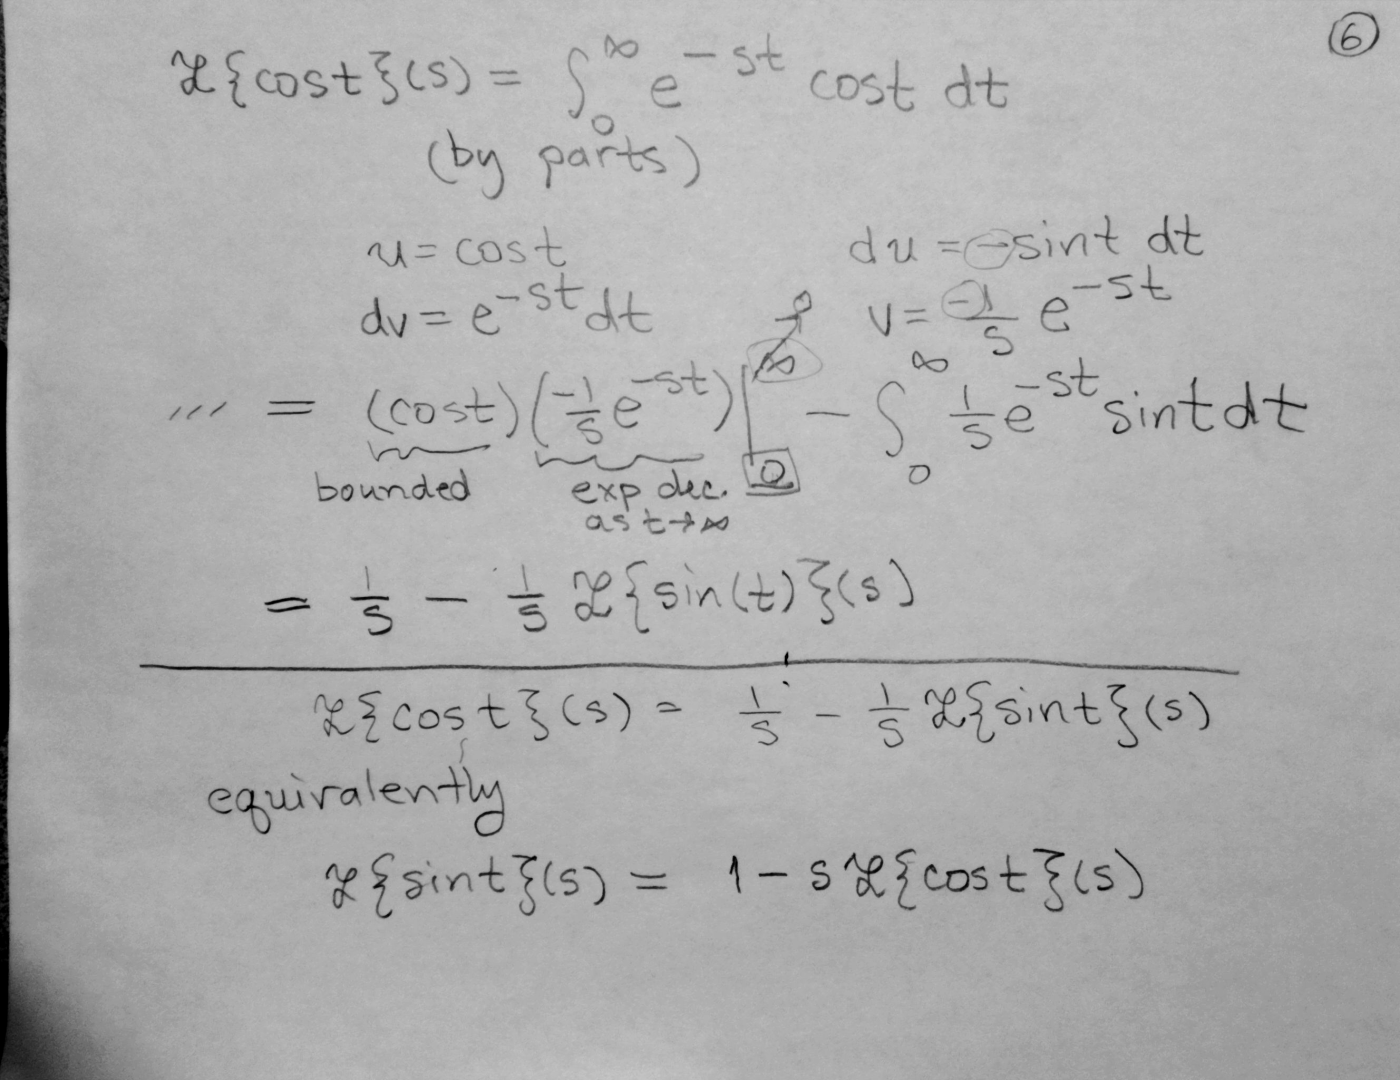 ⑥
ℒ{cost}(s) = ∫₀^∞ e^{-st} cost dt
(by parts)
u = cost du = -sint dt
dv = e^{-st} dt v = -1/s e^{-st}
... = (cost)(-1/s e^{-st})|₀^∞ →0 - ∫₀^∞ 1/s e^{-st} sint dt
bounded exp dec.
as t→∞
= 1/s - 1/s ℒ{sin(t)}(s)
ℒ{cost}(s) = 1/s - 1/s ℒ{sint}(s)
equivalently
ℒ{sint}(s) = 1 - s ℒ{cost}(s)